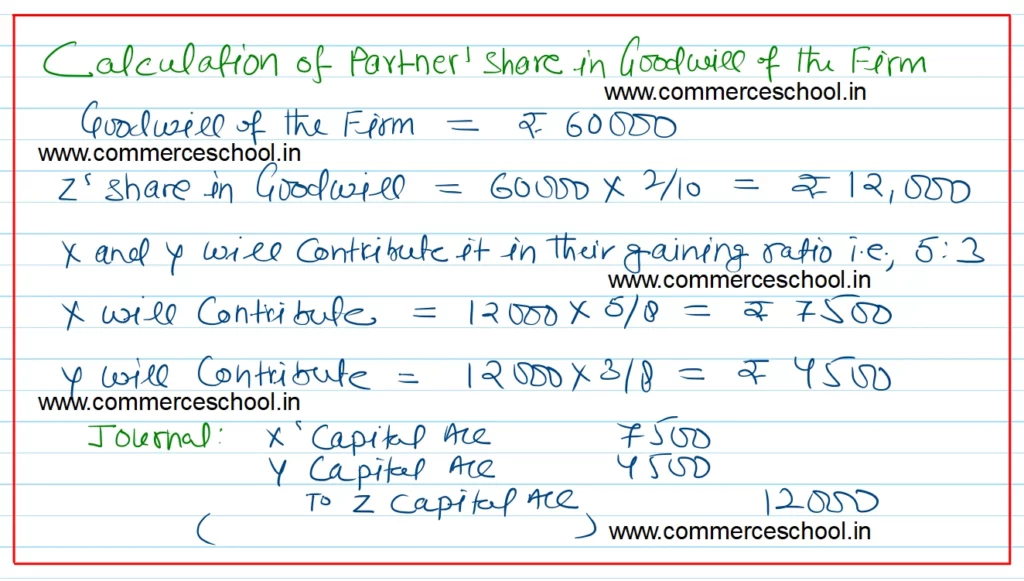 Calculation of Partner' Share in Goodwill of the Firm
www.commerceschool.in
Goodwill of the Firm = ₹ 60000
www.commerceschool.in
Z' Share in Goodwill = 60000 × 2/10 = ₹ 12,000
X and Y will Contribute it in their gaining ratio i.e., 5:3
www.commerceschool.in
X will Contribute = 12000 × 5/8 = ₹ 7500
Y will Contribute = 12000 × 3/8 = ₹ 4500
www.commerceschool.in
Journal: X' Capital A/c 7500
Y Capital A/c 4500
To Z Capital A/c 12000
( ) www.commerceschool.in